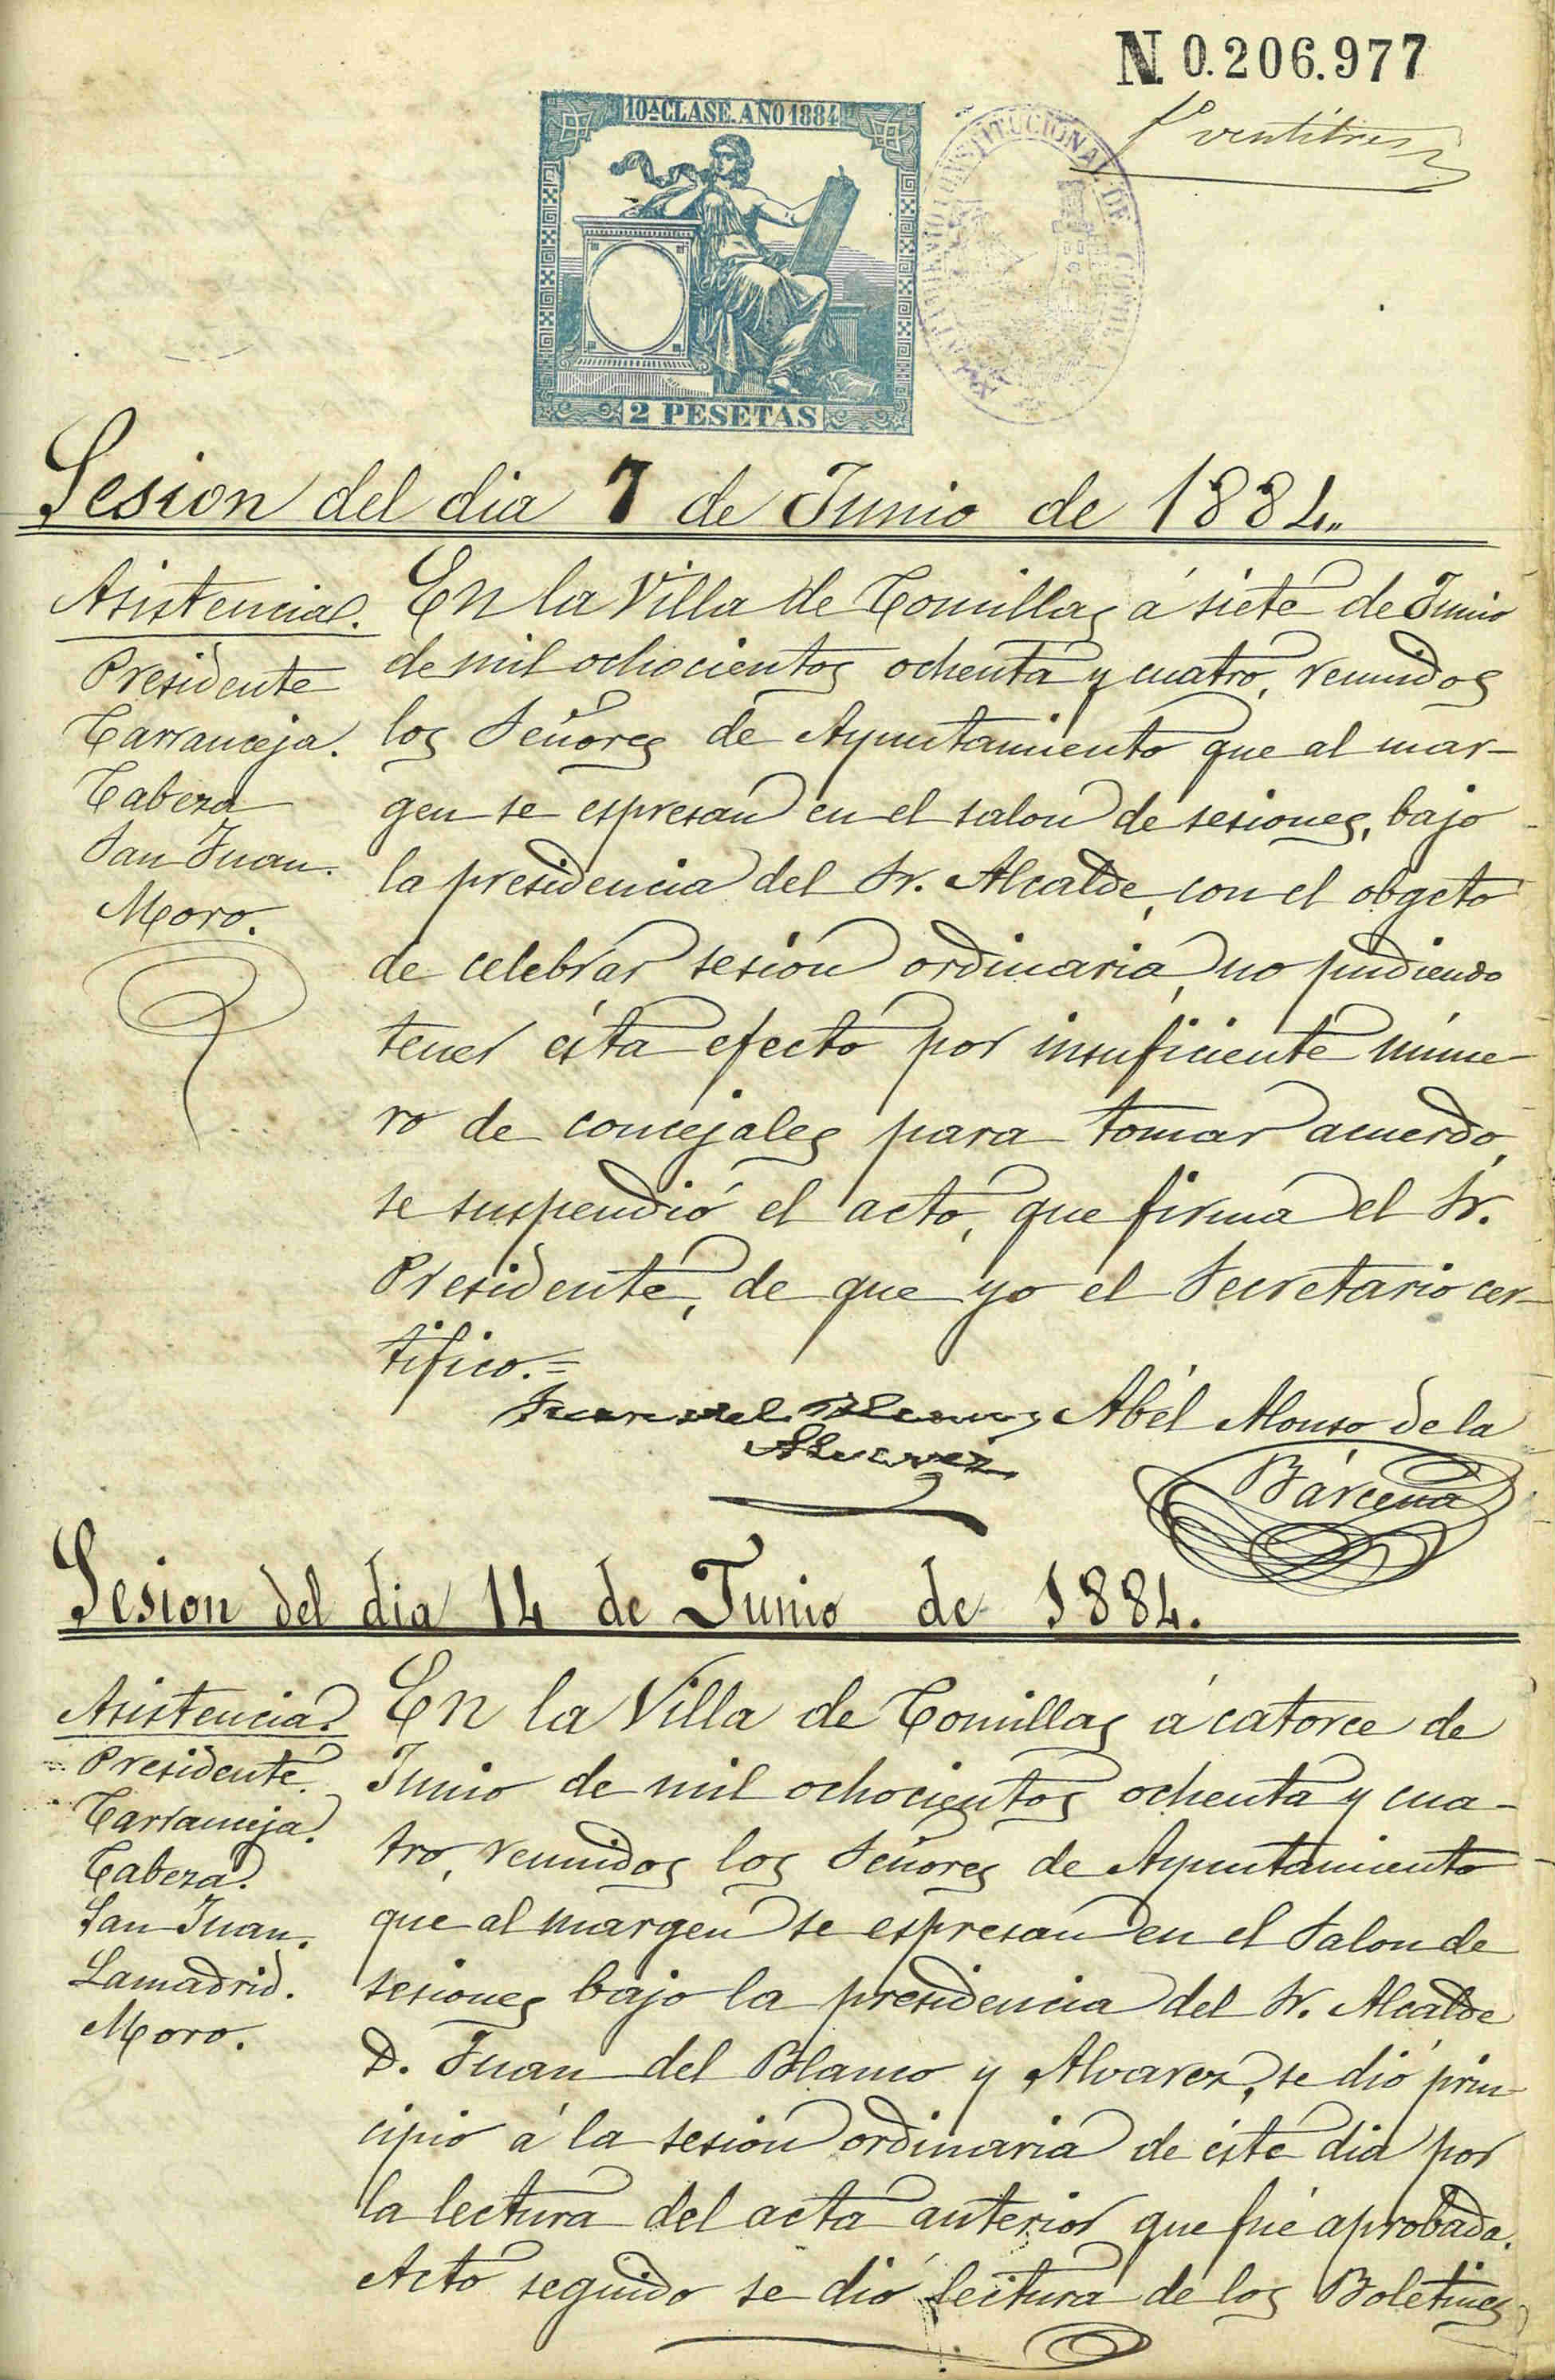 N. 0.206.977
fº ventitres
10ª CLASE. AÑO 1884
CONSTITUCIONAL DE
2 PESETAS
Sesion del dia 7 de Junio de 1884.,,
Asistencia.
Presidente
Carranceja.
Cabeza
San Juan.
Moro.
En la Villa de Comillas á siete de Junio
de mil ochocientos ochenta y cuatro, reunidos
los Señores de Ayuntamiento que al mar-
gen se espresan en el salon de sesiones, bajo
la presidencia del Sr. Alcalde, con el obgeto
de celebrar sesion ordinaria, no pudiendo
tener ésta efecto por insuficiente núme-
ro de concejales para tomar acuerdo,
se suspendió el acto, que firma el Sr.
Presidente, de que yo el Secretario cer-
tifico.=
Juan del Blanco y
Alvarez
Abél Alonso de la
Bárcena
Sesion del dia 14 de Junio de 1884.
Asistencia.
Presidente.
Carranceja.
Cabeza.
San Juan.
Lamadrid.
Moro.
En la Villa de Comillas á catorce de
Junio de mil ochocientos ochenta y cua-
tro, reunidos los Señores de Ayuntamiento
que al margen se espresan en el Salon de
sesiones bajo la presidencia del Sr. Alcalde
D. Juan del Blanco y Alvarez, se dió prin-
cipio á la sesion ordinaria de éste dia por
la lectura del acta anterior que fué aprobada.
Acto seguido se dió lectura de los Boletines